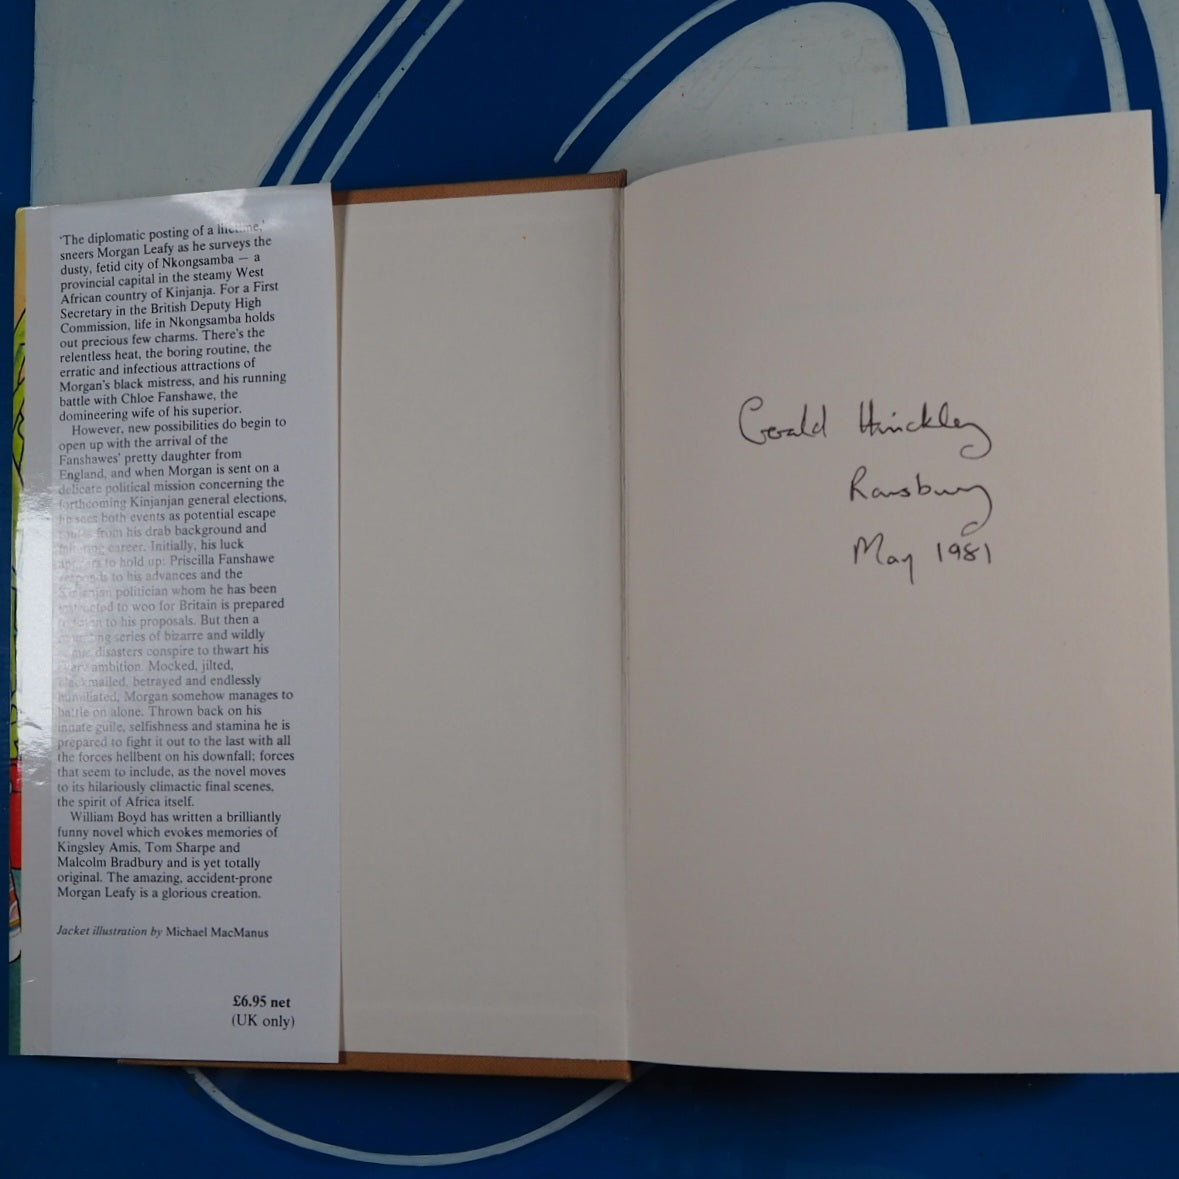 'The diplomatic posting of a lifetime,'
sneers Morgan Leafy as he surveys the
dusty, fetid city of Nkongsamba — a
provincial capital in the steamy West
African country of Kinjanja. For a First
Secretary in the British Deputy High
Commission, life in Nkongsamba holds
out precious few charms. There's the
relentless heat, the boring routine, the
erratic and infectious attractions of
Morgan's black mistress, and his running
battle with Chloe Fanshawe, the
domineering wife of his superior.
However, new possibilities do begin to
open up with the arrival of the
Fanshawes' pretty daughter from
England, and when Morgan is sent on a
delicate political mission concerning the
forthcoming Kinjanjan general elections,
he sees both events as potential escape
routes from his drab background and
career. Initially, his luck
appears to hold up: Priscilla Fanshawe
responds to his advances and the
Kinjanjan politician whom he has been
instructed to woo for Britain is prepared
to listen to his proposals. But then a
series of bizarre and wildly
comic disasters conspire to thwart his
every ambition. Mocked, jilted,
blackmailed, betrayed and endlessly
humiliated, Morgan somehow manages to
battle on alone. Thrown back on his
innate guile, selfishness and stamina he is
prepared to fight it out to the last with all
the forces hellbent on his downfall; forces
that seem to include, as the novel moves
to its hilariously climactic final scenes,
the spirit of Africa itself.
William Boyd has written a brilliantly
funny novel which evokes memories of
Kingsley Amis, Tom Sharpe and
Malcolm Bradbury and is yet totally
original. The amazing, accident-prone
Morgan Leafy is a glorious creation.
Jacket illustration by Michael MacManus
£6.95 net
(UK only)
Gerald Hinckley
Ramsbury
May 1981